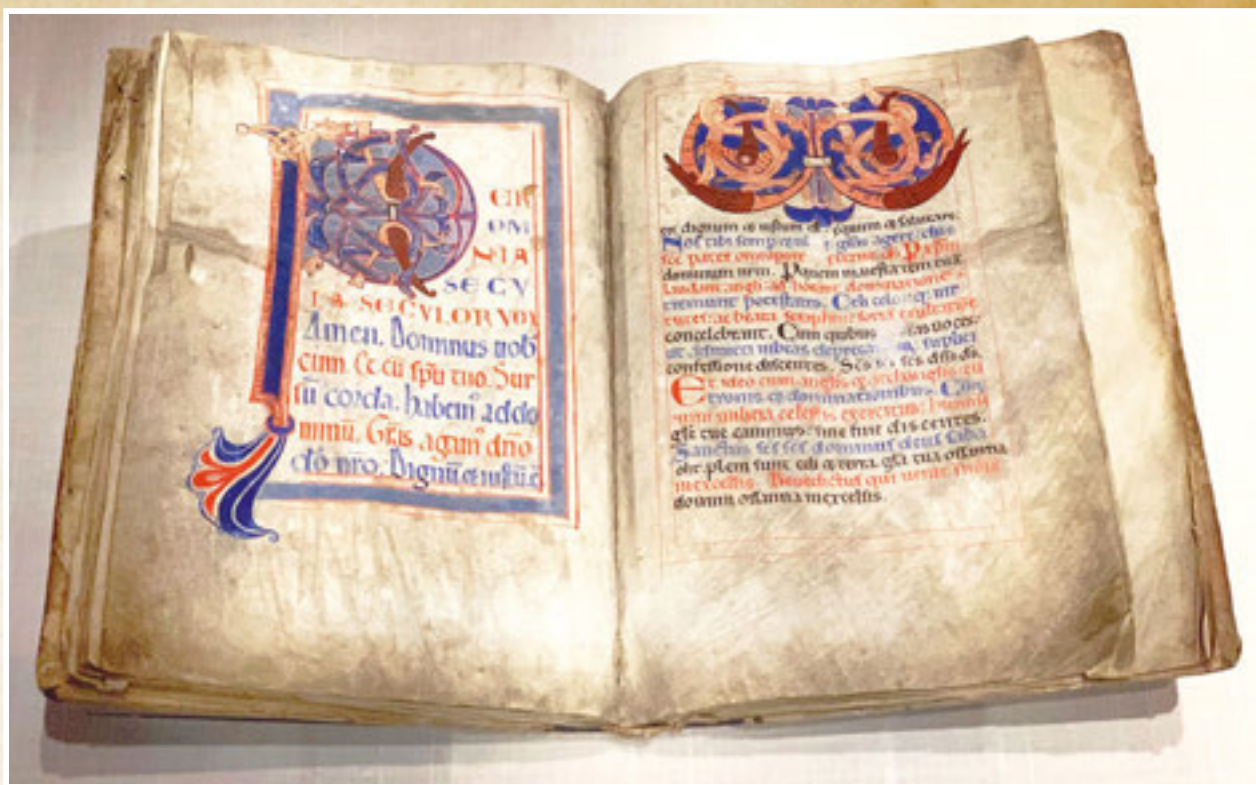 PER
OM
NIA
SECV
LA SECVLORVM
Amen. Dominus uob
cum. Et cū spū tuo. Sur
sū corda. habem᾽ addo
minū. Gr̄as agam᾽ dn̄o
dō nr̄o. Dignū & iustū ē
dignum & iustum equum & salutare.
Nos tibi semp gr̄as agere. dn̄e
sc̄e pater omnipotens &erne ds̄. P xp̄m
dominum nrm̄. Pquem maiestatem tuā
laudant angli. adorant dominationes.
tremunt potestates. Celi celorumq; uir
tutes. ac beata seraphin. socia exultatione
concelebrant. Cum quibus & nr̄as uoces.
ut admitti iubeas deprecamur. suplici
confessione dicentes. Sc̄s sc̄s sc̄s dn̄s ds̄.
Et ideo cum anglis & archanglis cū
tronis & dominationibus. Cūq;
omni militia celestis exercitus. himnū
gl̄e tue canimus. sine fine dicentes.
Sanctus sc̄s sc̄s dominus deus saba
oth. pleni sunt celi & terra. gl̄a tua osanna
inexcelsis. Benedictus qui uenit innoīe
domini osanna inexcelsis.